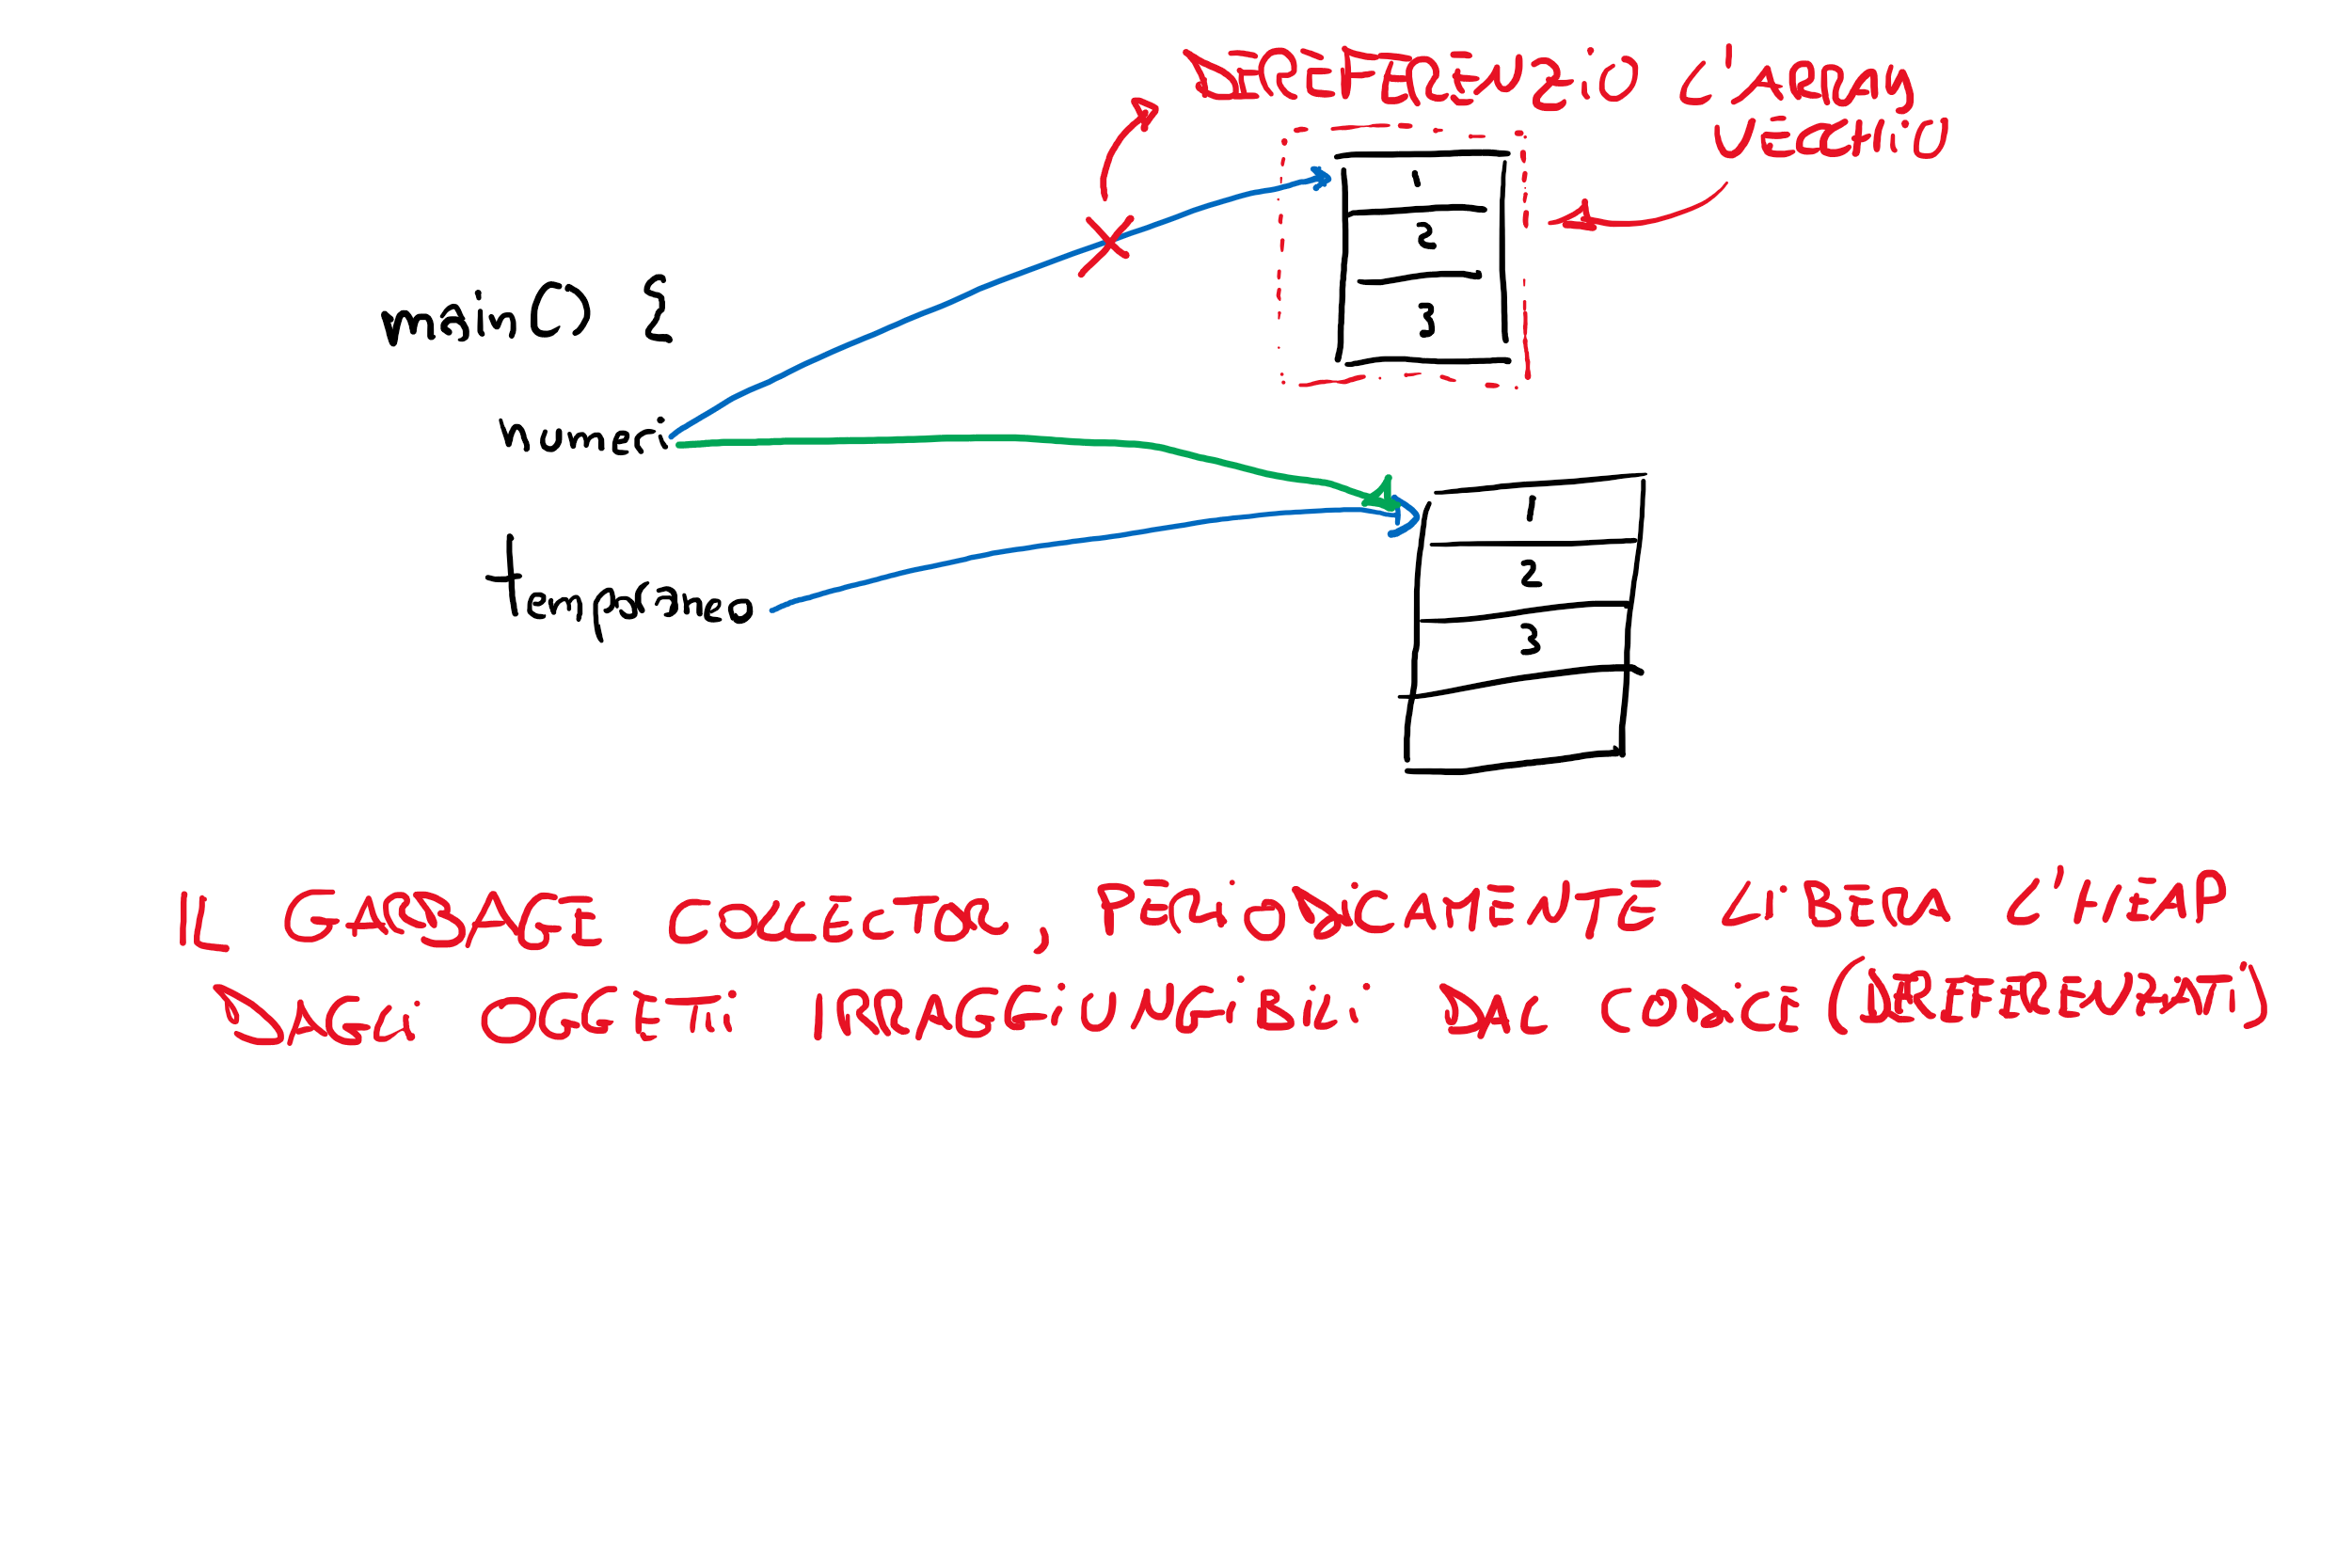 DEREFERENZIO L'ARRAY
VECCHIO
1
2
3
main() {
numeri
temporaneo
1
2
3
IL GARBAGE COLLECTOR, PERIODICAMENTE LIBERA L'HEAP
DAGLI OGGETTI IRRAGGIUNGIBILI DAL CODICE (DEREFERENZIATI)